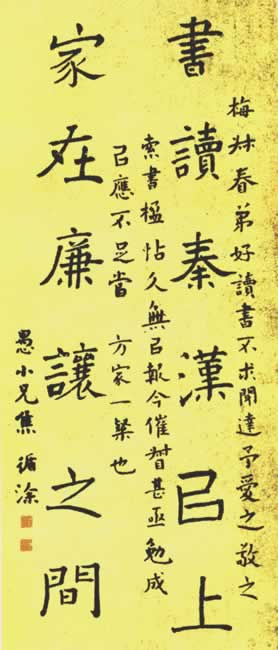 梅叔眷弟好讀書不求聞達予愛之敬之
書讀秦漢㠯上
索書楹帖久無㠯報今催督甚亟勉成
㠯應不足當 方家一粲也
家在廉讓之間
愚小兄焦循塗